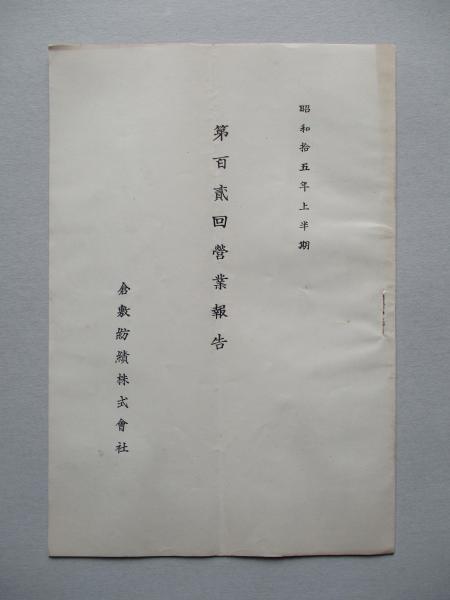 昭和拾五年上半期
第百貳回營業報告
倉敷紡績株式會社